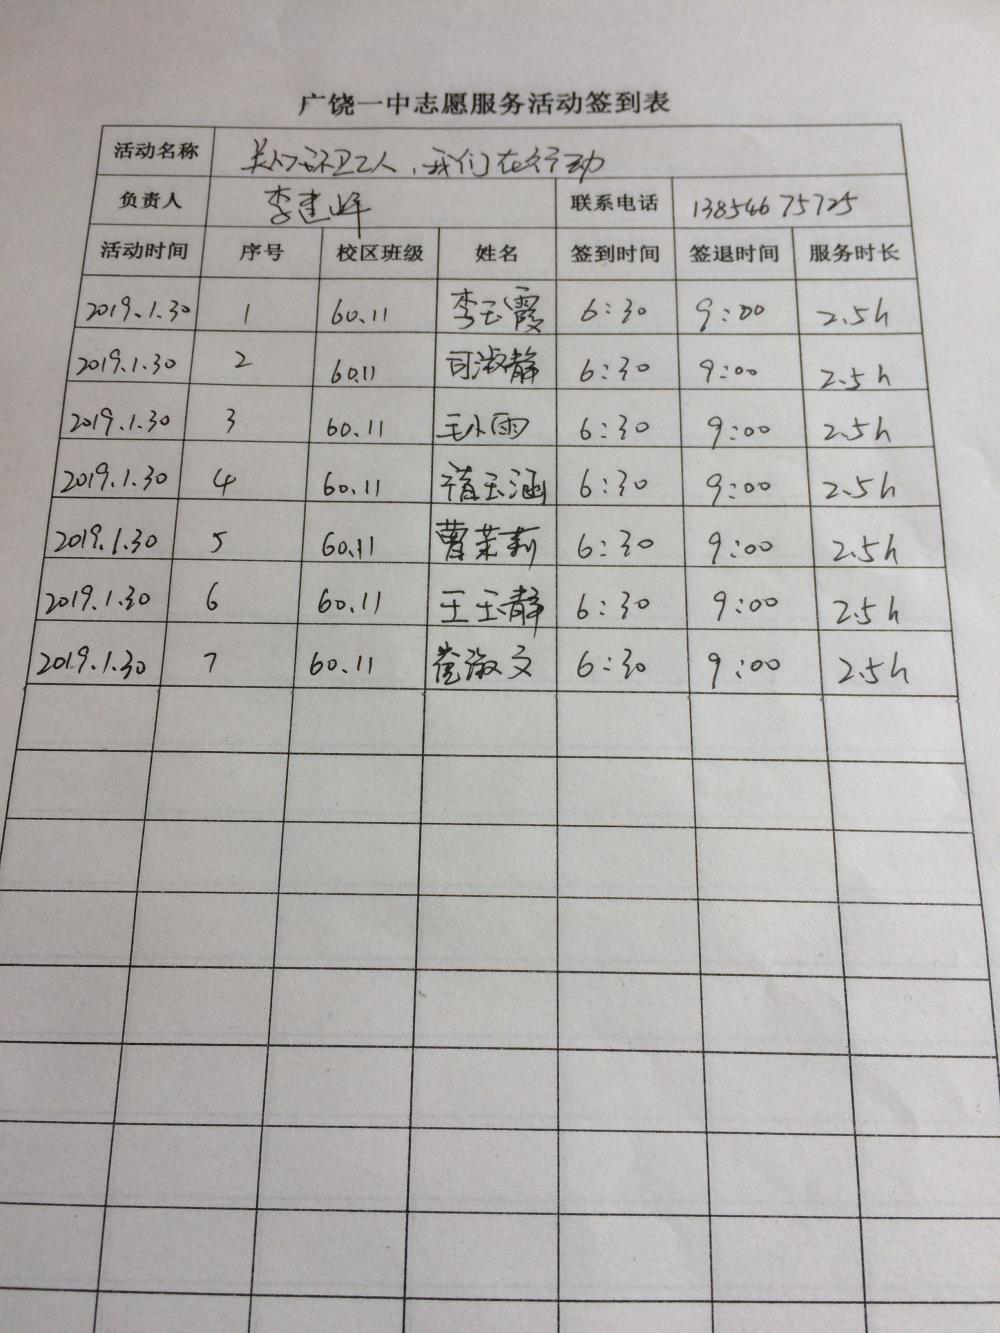 广饶一中志愿服务活动签到表
活动名称 关心环卫工人，我们在行动
负责人 李建峰 联系电话 13854675725
活动时间 序号 校区班级 姓名 签到时间 签退时间 服务时长
2019.1.30 1 60.11 李玉霞 6:30 9:00 2.5h
2019.1.30 2 60.11 司淑静 6:30 9:00 2.5h
2019.1.30 3 60.11 王小雨 6:30 9:00 2.5h
2019.1.30 4 60.11 玉涵 6:30 9:00 2.5h
2019.1.30 5 60.11 曹茉莉 6:30 9:00 2.5h
2019.1.30 6 60.11 王玉静 6:30 9:00 2.5h
2019.1.30 7 60.11 崔淑文 6:30 9:00 2.5h